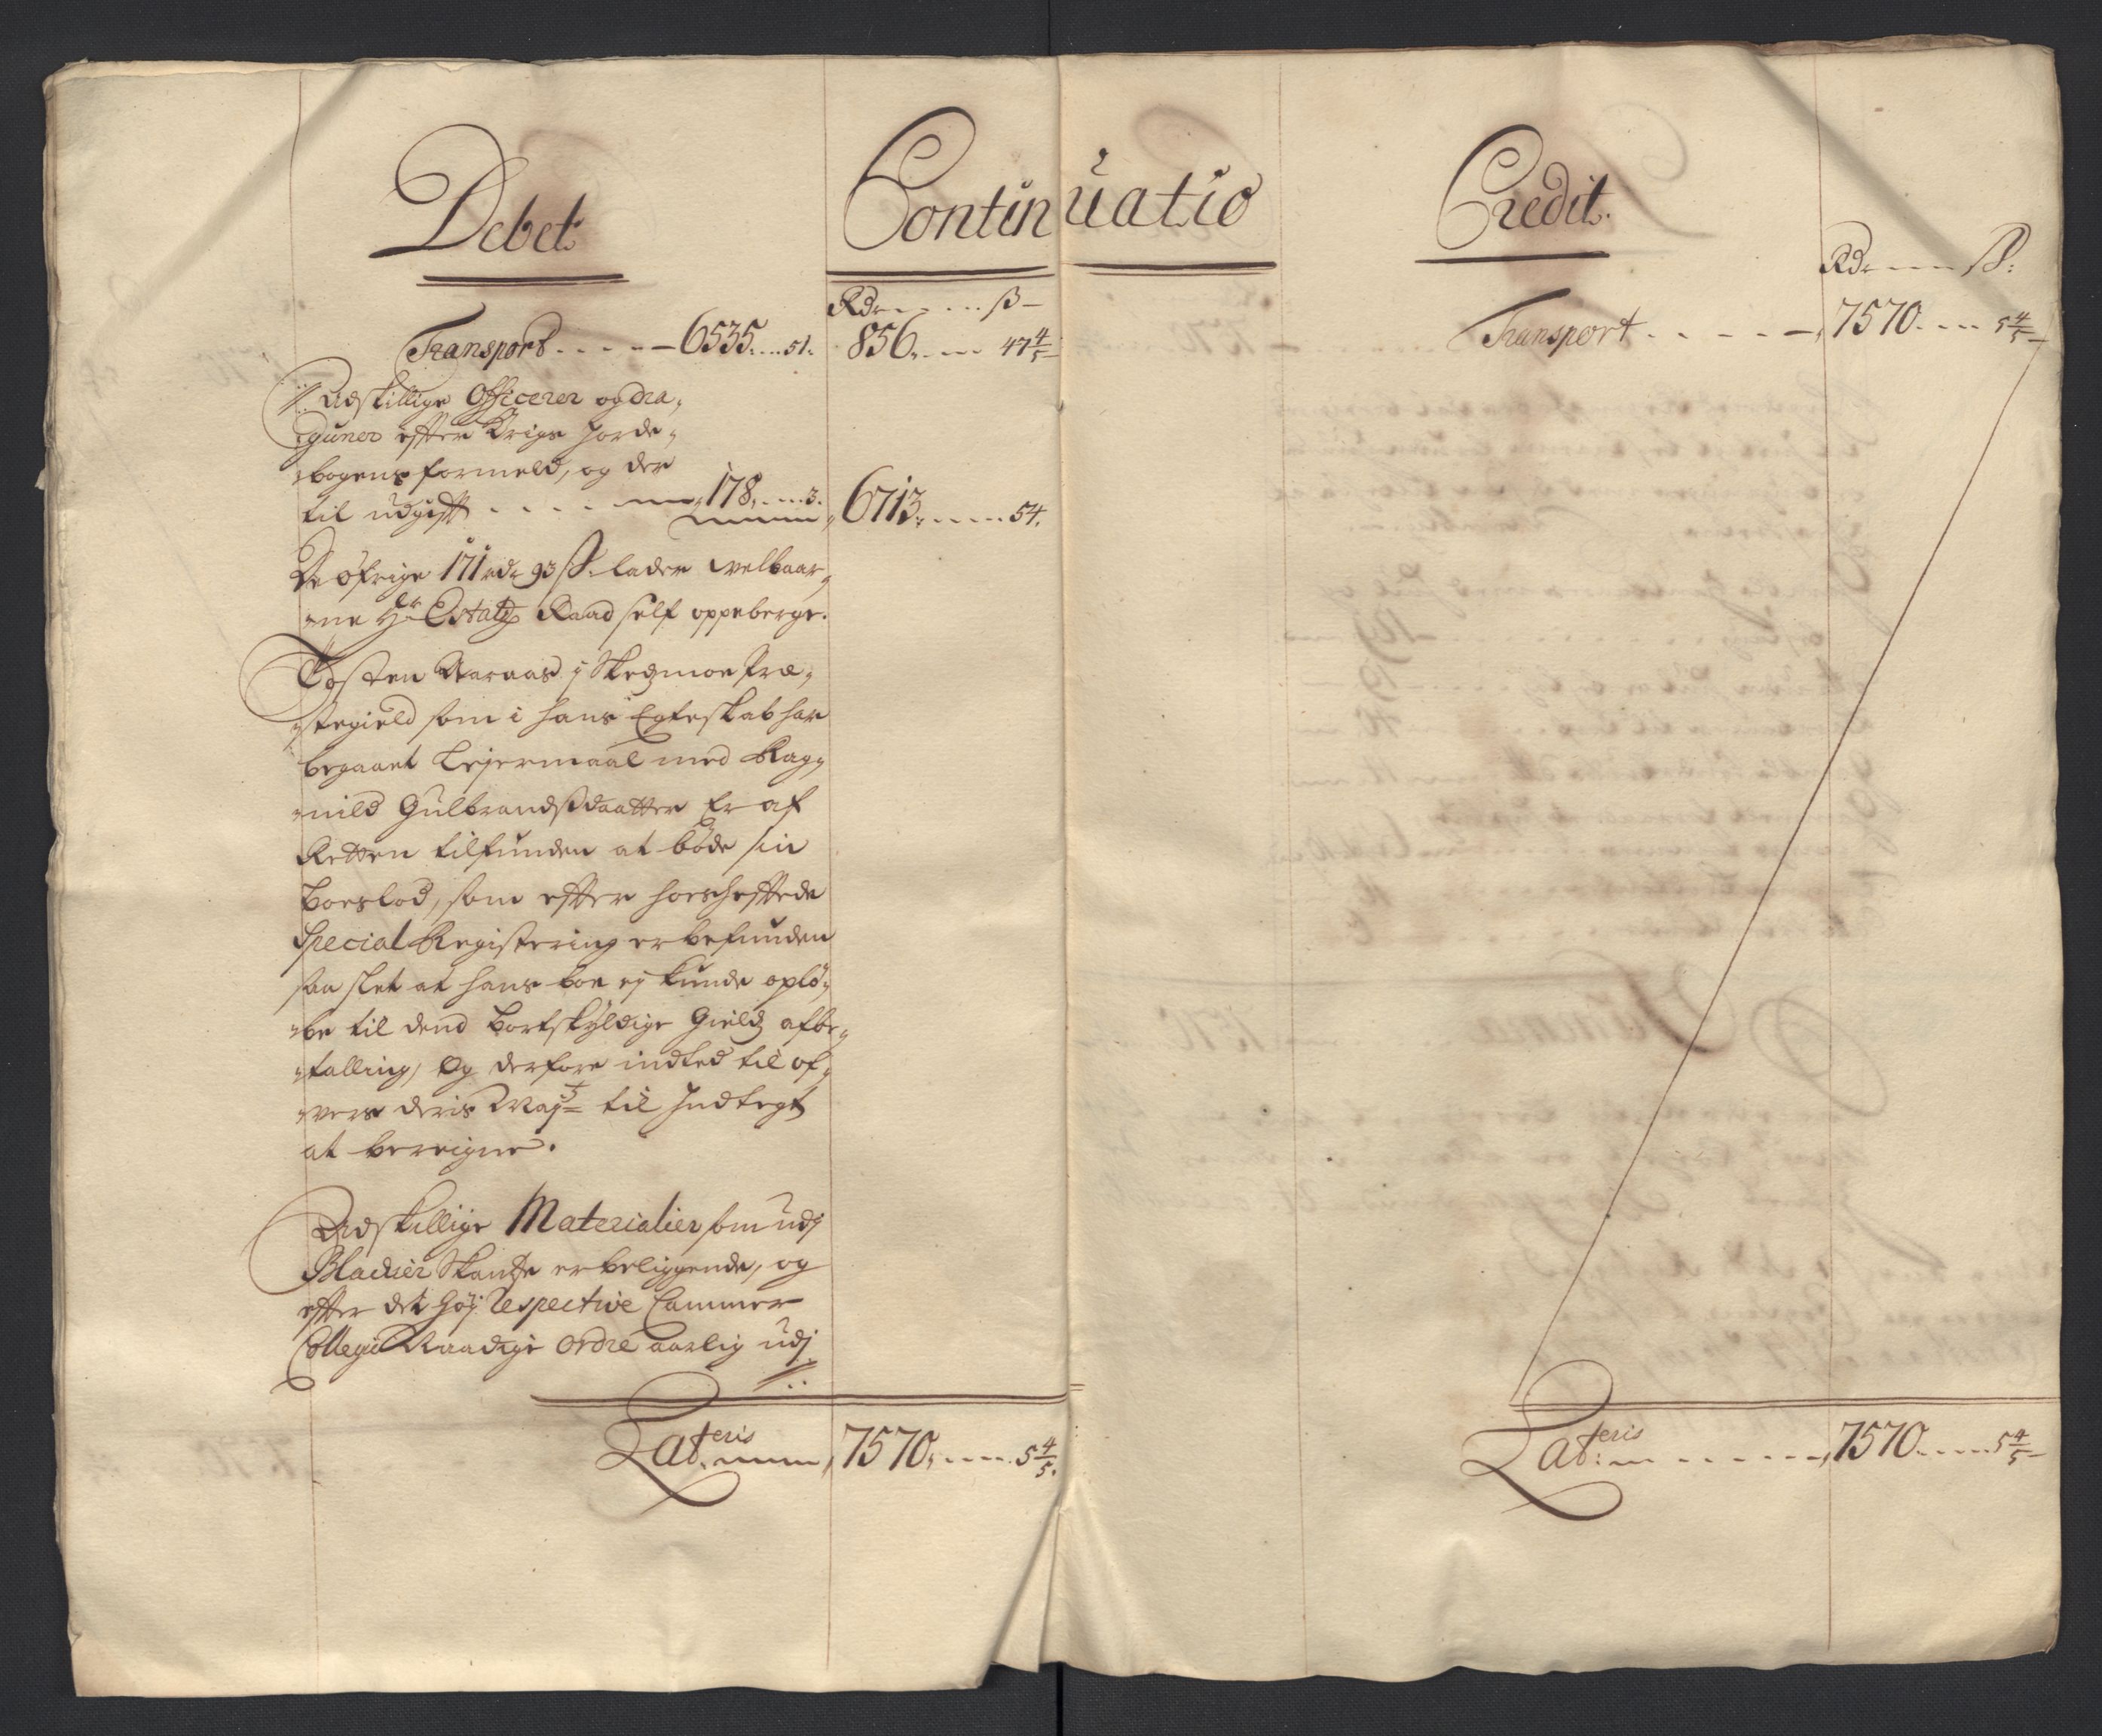 Debet
Continuatio
Rdr ß
Transport 6535 51. 856 47 4/5
Udskillige Officerer og Dra,
guner effter Krigs Jorde,
bogens formeld, og der
til udgift 178 3. 6713 54.
De øfrige 171 rdr 93 ß. lader Velbaar,
ne Hr Estatz Raad self oppeberge.
Tosten Aaraas i Skedzmoe Præ,
stegield som i hans Egteskab har
begaaet Lejermaal med Rag,
nild Gulbrandsdaatter Er af
Retten tilfunden at bøde sin
boeslod, som effter hoshefftede
Special Registering er befunden
saa slet at hans boe ej kunde opløf,
be til dend bortskyldige Gields afbe,
talling, Og derfore indted til of,
vers deris Maj:t til Indtegt
at bereigne.
Udskillige Materialier som udj
Blacher Skantze er beliggende, og
effter det høj Respective Cammer
Collegii Naadige Ordre aarlig udj
Lat:eris 7570 5 4/5.
Credit.
Rdr ß:
Transport 7570 5 4/5
Lat:eris 7570 5 4/5